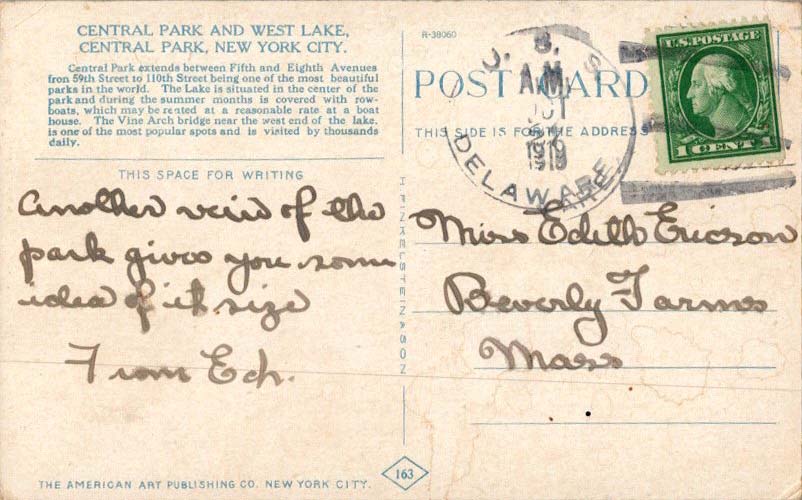 CENTRAL PARK AND WEST LAKE,
CENTRAL PARK, NEW YORK CITY.
Central Park extends between Fifth and Eighth Avenues
fron 59th Street to 110th Street being one of the most beautiful
parks in the world. The Lake is situated in the center of the
park and during the summer months is covered with row-
boats, which may be rented at a reasonable rate at a boat
house. The Vine Arch bridge near the west end of the lake,
is one of the most popular spots and is visited by thousands
daily.
THIS SPACE FOR WRITING
Another veiw of the
park gives you some
idea of it size
From Ech.
THE AMERICAN ART PUBLISHING CO. NEW YORK CITY.
H FINKELSTEIN & SON
163
R-38060
POST CARD
THIS SIDE IS FOR THE ADDRESS
A.M.
1919
DELAWARE
U.S. POSTAGE
1 CENT 1
Miss Edith Ericson
Beverly Farms
Mass